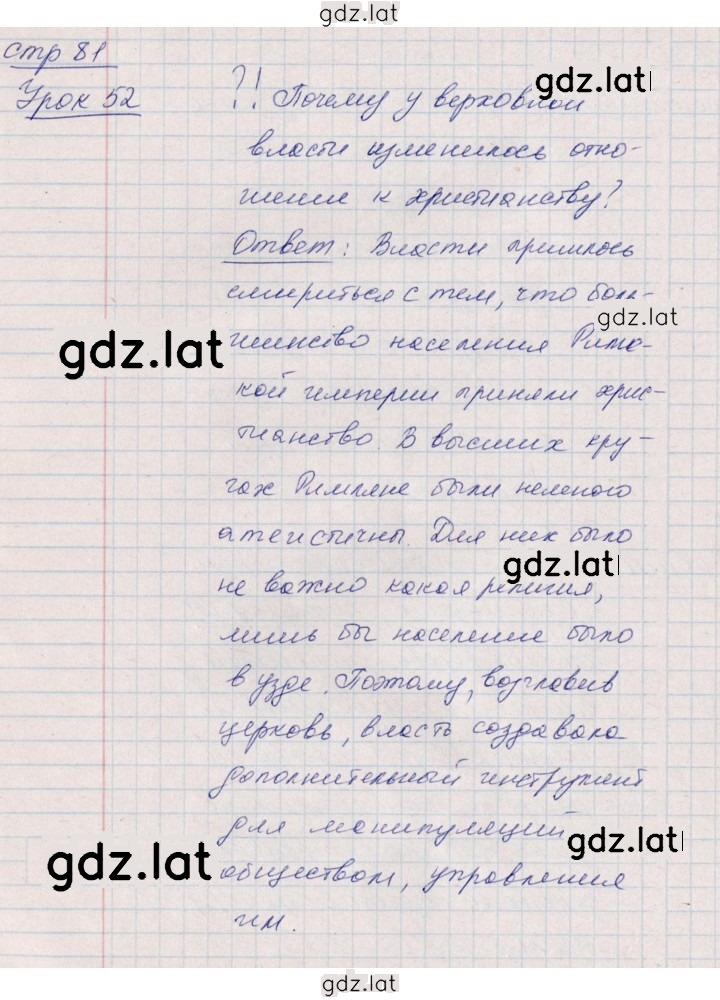 gdz.lat
стр 81
Урок 52
gdz.lat
?! Почему у верховной
власти изменилось отно-
шение к христианству?
Ответ: Власти пришлось
смириться с тем, что боль-
gdz.lat
шинство населения Римс-
gdz.lat
кой империи приняли хрис-
тианство. В высших кру-
гах Римляне были немного
атеистичны. Для них было
gdz.lat
не важно какая религия,
лишь бы население было
в узде. Поэтому, возглавив
церковь, власть создавала
дополнительный инструмент
для манипуляций
gdz.lat
gdz.lat
обществом, управления
им.
gdz.lat